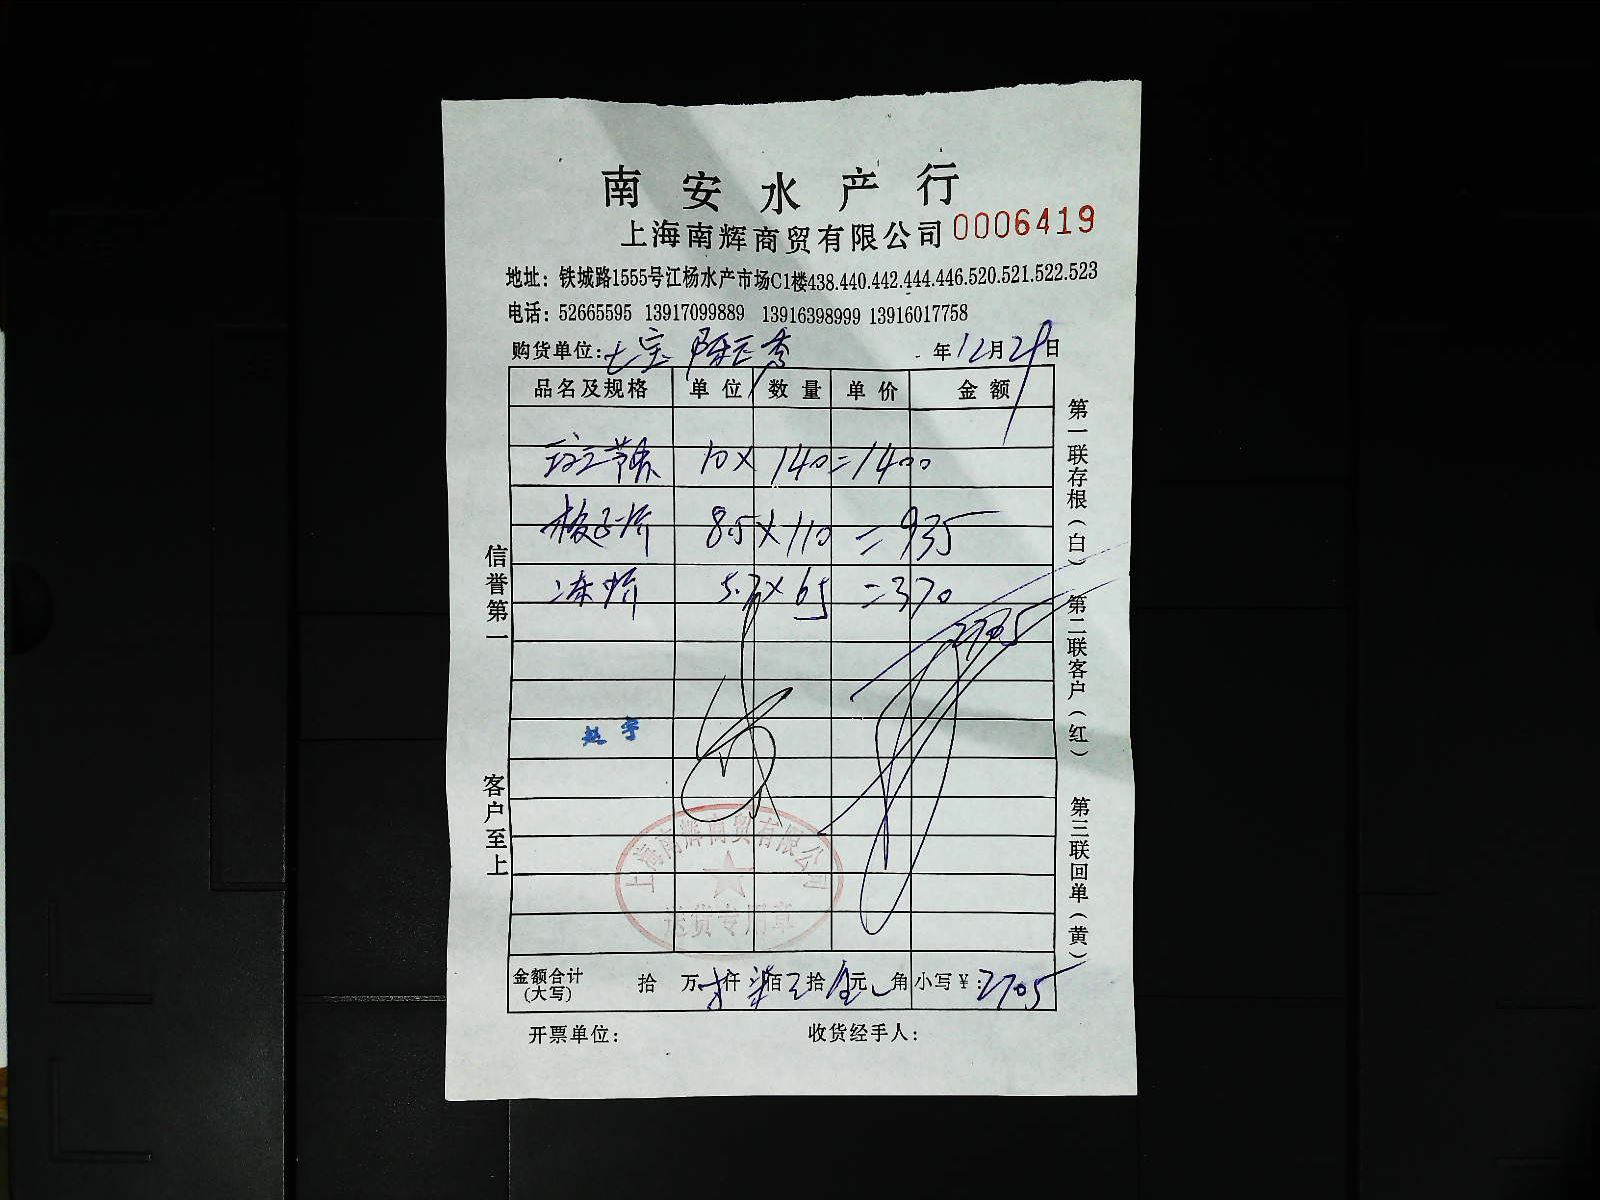 南安水产行
上海南辉商贸有限公司 0006419
地址：铁城路1555号江杨水产市场C1楼438.440.442.444.446.520.521.522.523
电话：52665595 13917099889 13916398999 13916017758
购货单位：七宝 陈 秀 年12月29日
品名及规格 单位 数量 单价 金额
节 10×140=1400
板 8.5×110=935
冻虾 5.7×65=370
2705
赵宇
上海南辉商贸有限公司
送货专用章
金额合计（大写） 拾 万 仟柒佰 拾 元 角 小写¥：2705
开票单位： 收货经手人：
信誉第一
客户至上
第一联存根（白）
第二联客户（红）
第三联回单（黄）